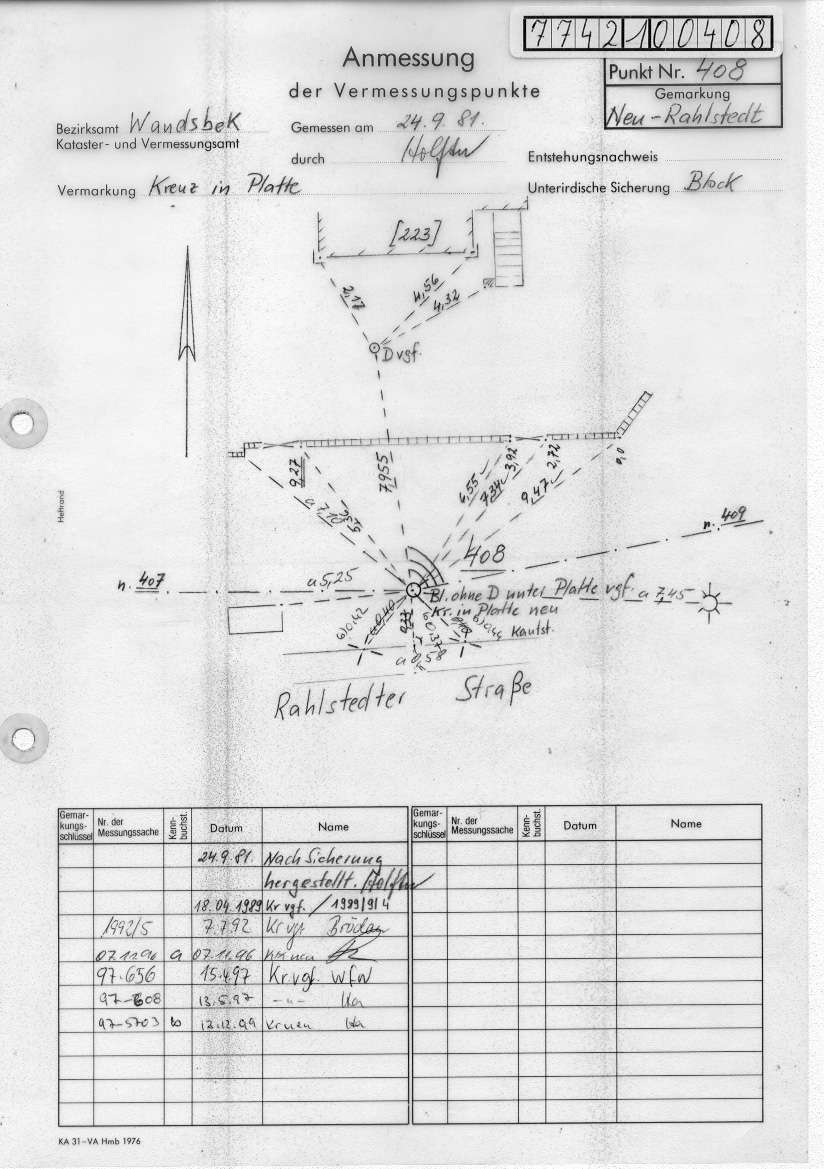 7742100408
Anmessung
der Vermessungspunkte
Punkt Nr. 408
Gemarkung
Neu-Rahlstedt
Bezirksamt Wandsbek
Kataster- und Vermessungsamt
Gemessen am 24.9.81.
durch
Entstehungsnachweis
Vermarkung Kreuz in Platte
Unterirdische Sicherung Block
[223]
2,17
4,56
4,32
D vgf.
9,27
a 7,10
5,32
7955
6,55
7,34
3,92
2,72
9,47
0,0
408
n. 409
n. 407
a 5,25
Bl. ohne D unter Platte vgf.
a 7,45
Kr. in Platte neu
Kantst.
b) 0,42
a 0,40
b) 0,37
b) 0,44
a 0,58
Rahlstedter Straße
Heftrand
Gemar-
kungs-
schlüssel
Nr. der
Messungssache
Kenn-
buchst.
Datum
Name
Gemar-
kungs-
schlüssel
Nr. der
Messungssache
Kenn-
buchst.
Datum
Name
24.9.81. Nach Sicherung
hergestellt.
18.04.1989 Kr vgf. / 1989/9/4
1992/5 7.7.92 Kr vgf.
07.11.96 a 07.11.96 Kr neu
97-656 15.4.97 Kr. vgf. WfW
97-608 13.5.97 -"- Ha
97-5703 b 12.12.99 Kr neu Ha
KA 31–VA Hmb 1976